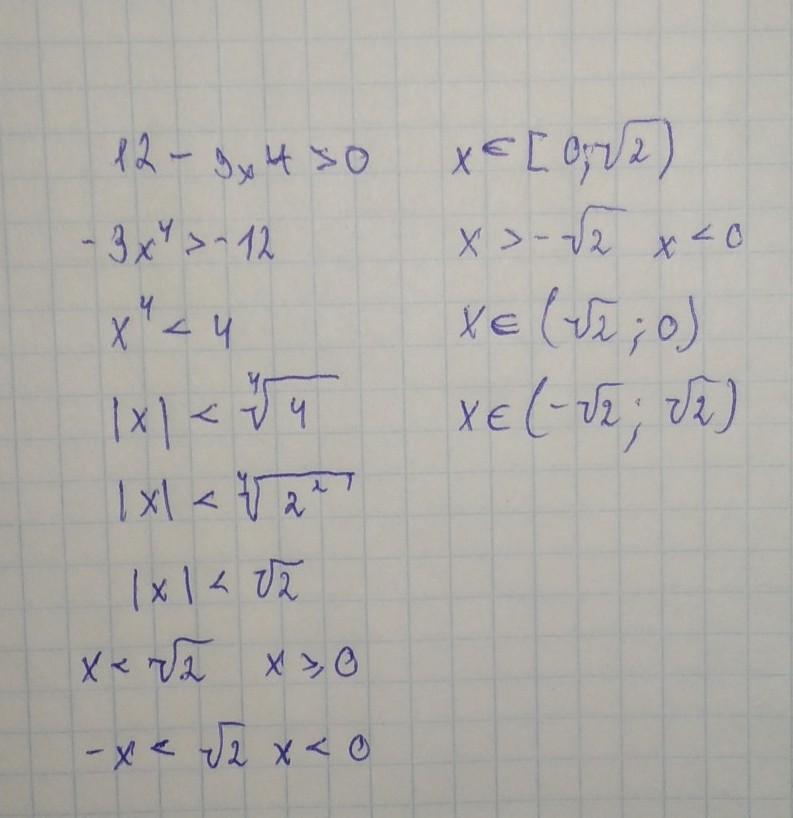 12 - 3x4 > 0
-3x⁴ > -12
x⁴ < 4
|x| < ⁴√4
|x| < ⁴√2²
|x| < √2
x < √2 x ⩾ 0
-x < √2 x < 0
x ∈ [0; √2)
x > -√2 x < 0
x ∈ (√2; 0)
x ∈ (-√2; √2)